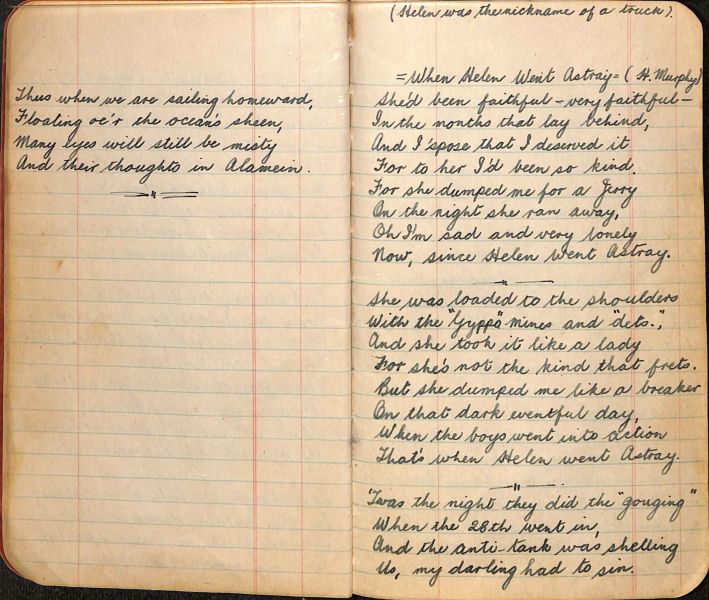 Thus when we are sailing homeward,
Floating oe'r the ocean's sheen,
Many eyes will still be misty
And their thoughts in Alamein.
(Helen was the nickname of a truck).
= When Helen Went Astray = (H. Murphy)
She'd been faithful - very faithful -
In the months that lay behind,
And I 'spose that I deserved it
For to her I'd been so kind.
For she dumped me for a Jerry
On the night she ran away,
Oh I'm sad and very lonely
Now, since Helen Went Astray.
She was loaded to the shoulders
With the "Gyppo" mines and "dets.",
And she took it like a lady
For she's not the kind that frets.
But she dumped me like a breaker
On that dark eventful day,
When the boys went into action
That's when Helen went Astray.
'Twas the night they did the "gouging"
When the 28th went in,
And the anti-tank was shelling
Us, my darling had to sin.